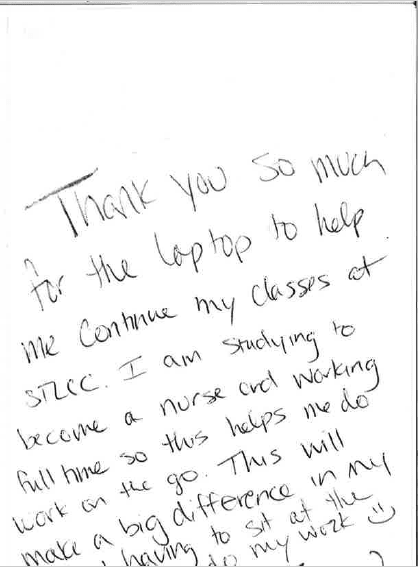 Thank you so much
for the laptop to help
me continue my classes at
STLCC. I am studying to
become a nurse and working
full time so this helps me do
work on the go. This will
make a big difference in my
having to sit at the
do my work :)